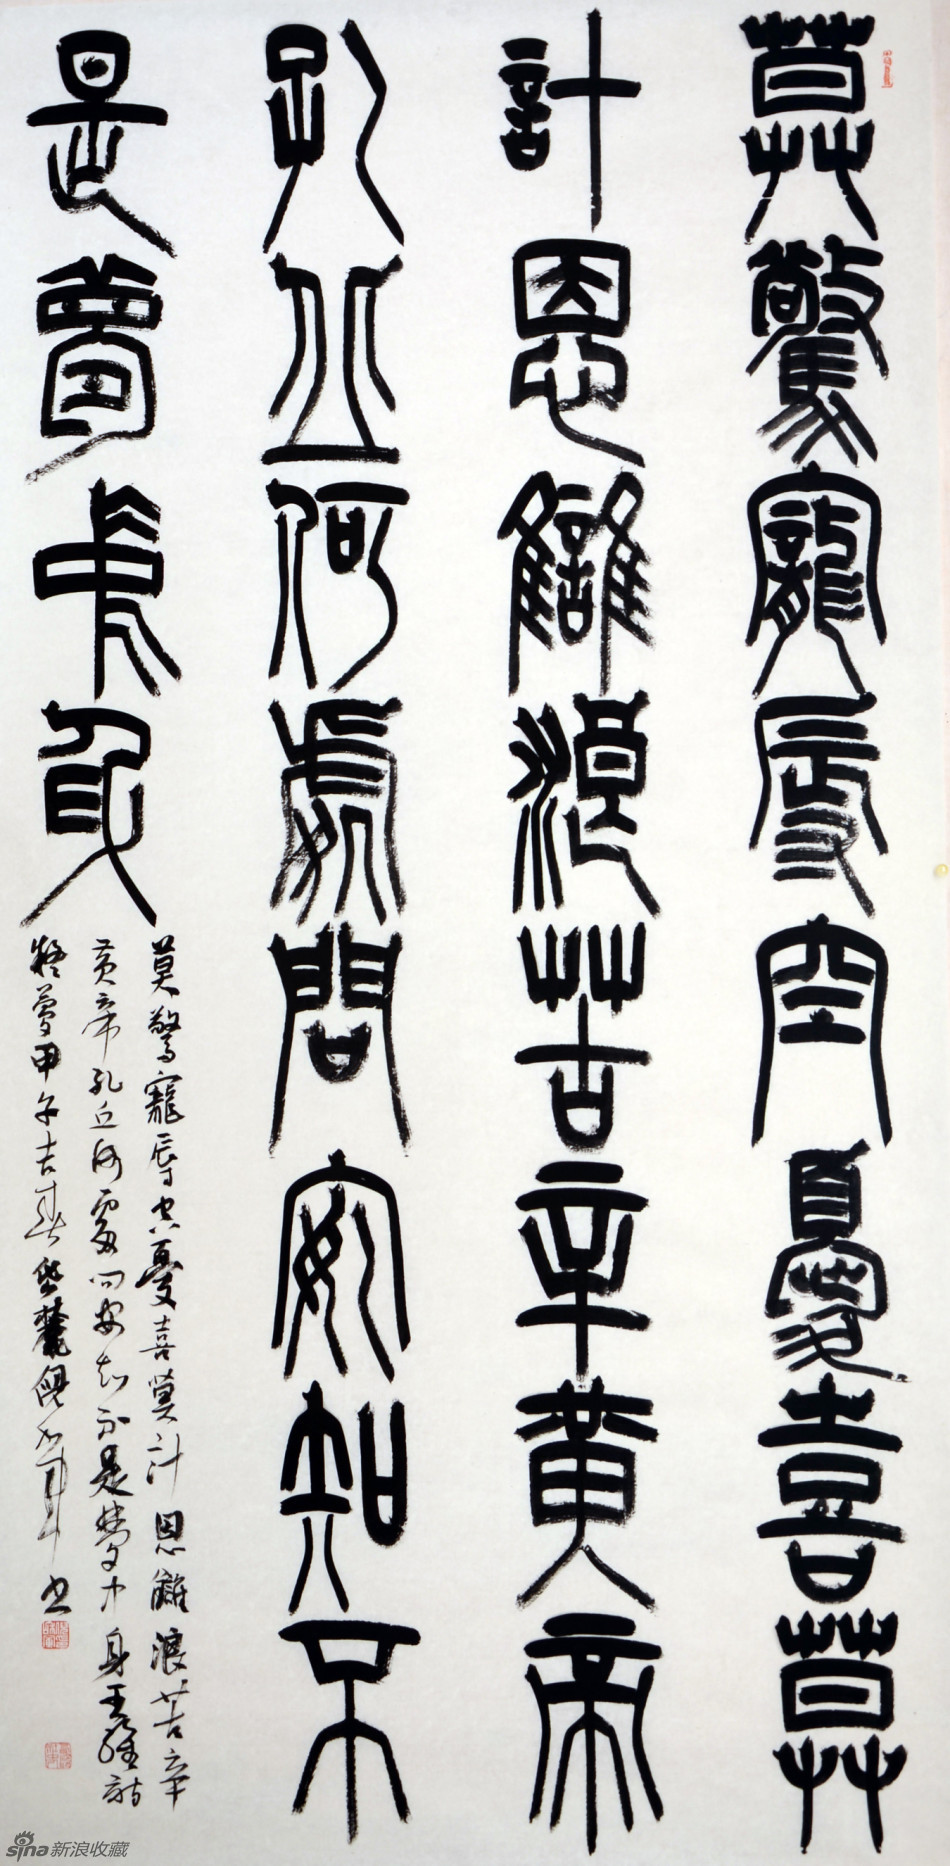 莫驚寵辱空憂喜莫
計恩讎浪苦辛黃帝
孔丘何處問安知不
是夢中身
莫驚寵辱空憂喜莫計恩讎浪苦辛
黃帝孔丘何處問安知不是夢中身王維詩
疑夢甲午吉春岳麓書
sina新浪收藏